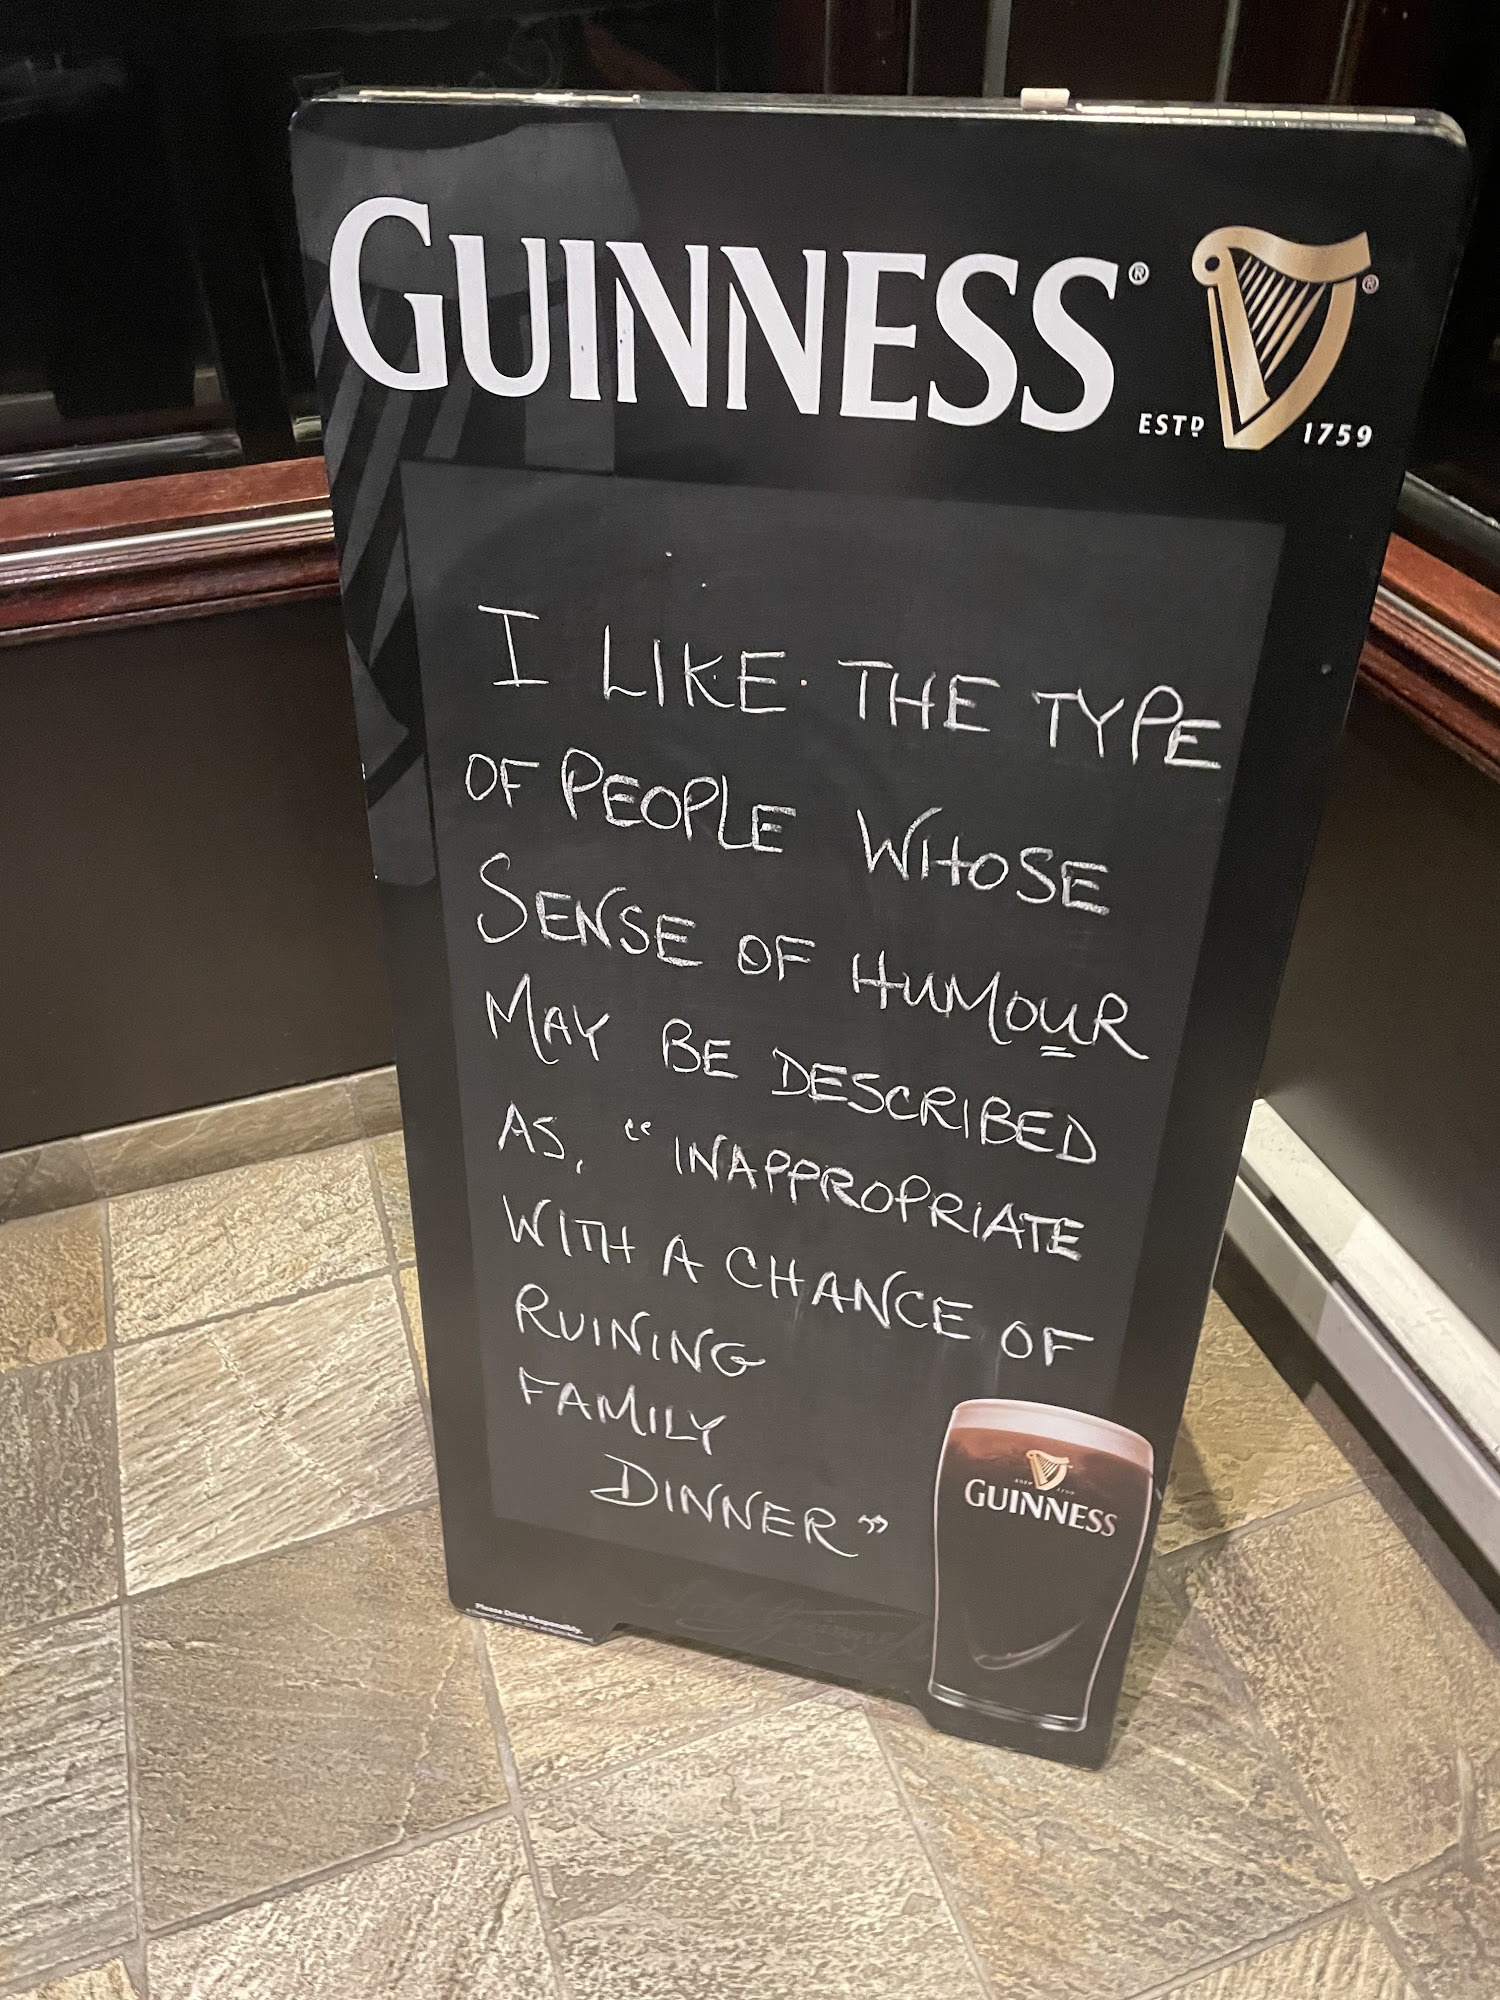 GUINNESS®
ESTD 1759
I LIKE THE TYPE
OF PEOPLE WHOSE
SENSE OF HUMOUR
MAY BE DESCRIBED
AS, “INAPPROPRIATE
WITH A CHANCE OF
RUINING
FAMILY
DINNER”
GUINNESS
Please Drink Responsibly.